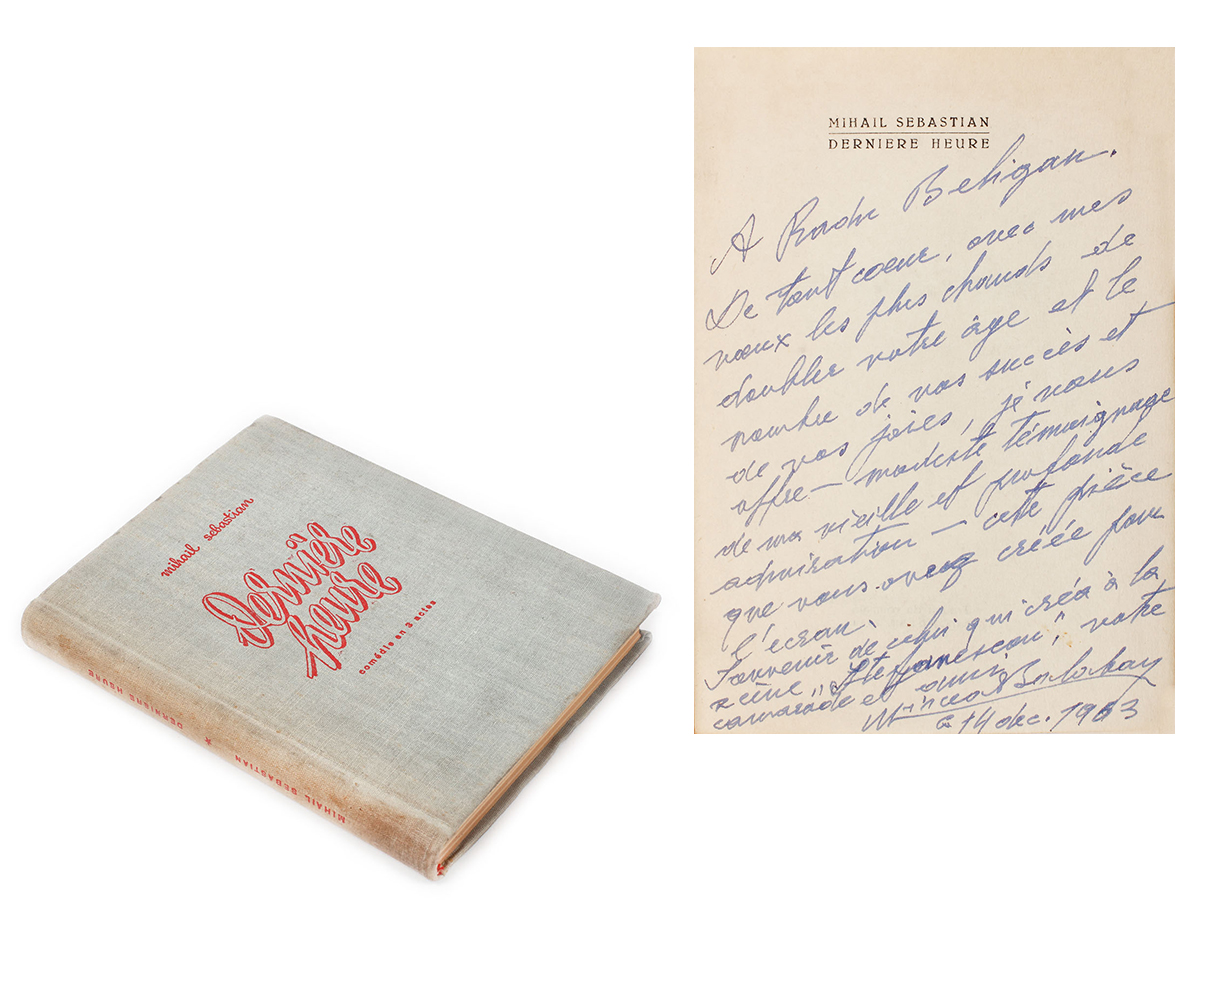 mihail sebastian
Dernière
heure
comédie en 3 actes
MIHAIL SEBASTIAN ★ DERNIERE HEURE
MIHAIL SEBASTIAN
DERNIERE HEURE
A Radu Beligan.
De tout coeur, avec mes
vœux les plus chauds de
doubler votre âge et le
nombre de vos succès et
de vos joies, je vous
offre — modeste témoignage
de ma vieille et profonde
admiration — cette pièce
que vous avez créée pour
l'écran.
Souvenir de celui qui créa à la
scène „Ștefănescu", votre
camarade et ami,
14 dec. 1963